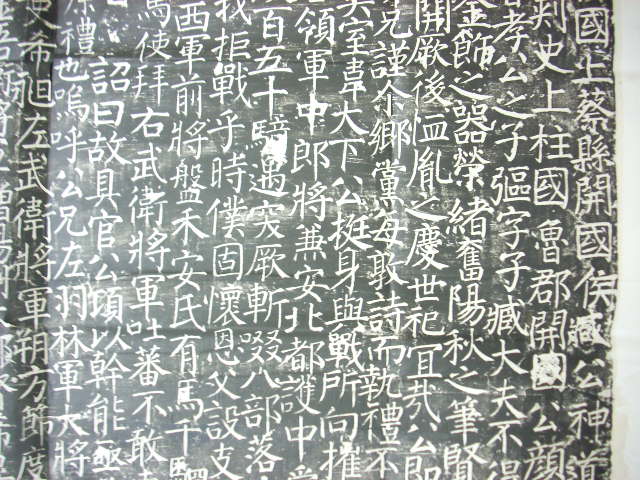 國上蔡縣開國侯臧公神道
刺史上柱國魯郡開國公顏
孝公之子彄字子臧大夫不得
金飾之器榮緒奮陽秋之筆賢
開厥後洫胤之慶世祀宜哉公即
兄謹命鄉黨每敦詩而執禮不
室韋大下公挺身與戰所向摧
領軍中郎將兼安北都護中
百五十騎遇突厥斬啜八部落
我拒戰乎時僕固懷恩父設支
西軍前將盤禾安氏有馬千
馬使拜右武衛將軍吐蕃不敢
詔曰故具官公頃以幹能亟
禮也嗚呼公兄左羽林軍大將
希旭左武衛將軍朔方節度